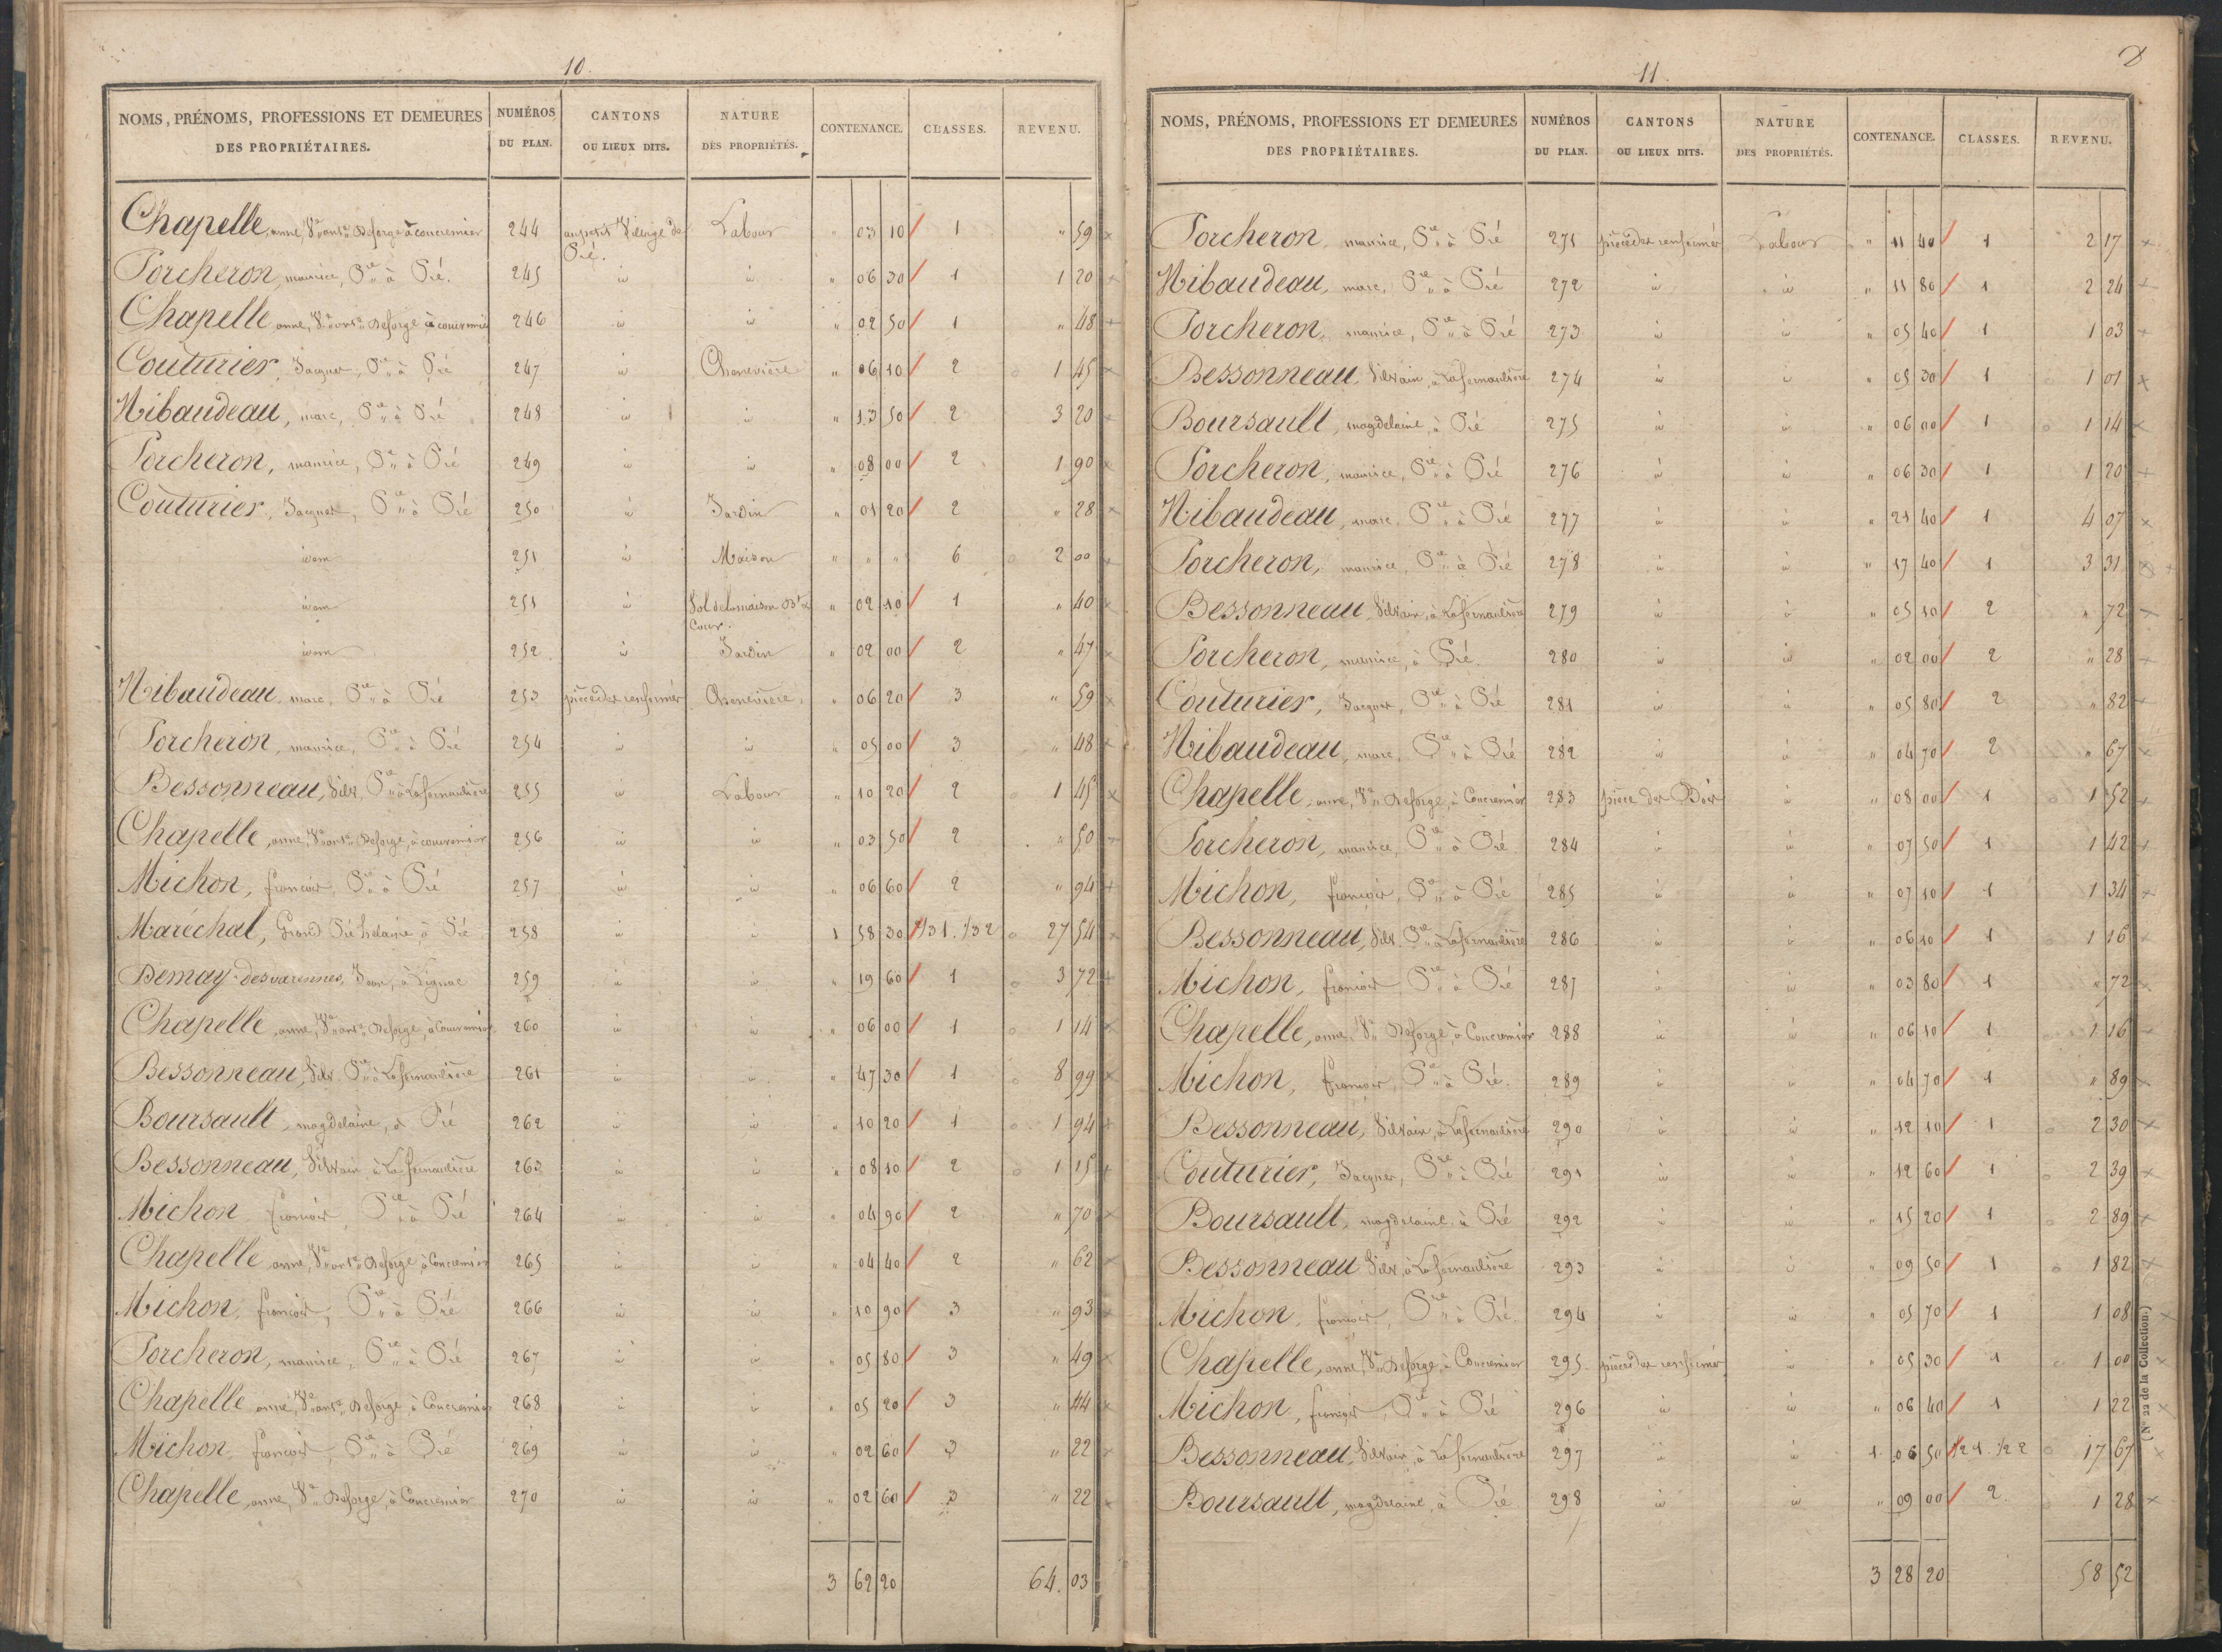 10.
NOMS, PRÉNOMS, PROFESSIONS ET DEMEURES DES PROPRIÉTAIRES. NUMÉROS DU PLAN. CANTONS OU LIEUX DITS. NATURE DES PROPRIÉTÉS. CONTENANCE. CLASSES. REVENU.
Chapelle, anne, Ve ants Deforge à concremier 244 au petit Village de Pré. Labour " 03 10 1 " 59
Porcheron, maurice, Pre à Pré. 245 id id " 06 30 1 1 20
Chapelle anne, Ve ants Deforge à concremier 246 id id " 02 50 1 " 48
Couturier, Jacques, Pre à Pré 247 id Chenevière " 06 10 2 1 45
Nibaudeau, marc, Pre à Pré 248 id id " 13 50 2 3 20
Porcheron, maurice, Pre à Pré 249 id id " 08 00 2 1 90
Couturier, Jacques, Pre à Pré 250 id Jardin " 01 20 2 " 28
idem 251 id Maison " " " 6 2 00
idem 251 id Sol de la maison Bt et Cour. " 02 10 1 " 40
idem 252 id Jardin " 02 00 2 " 47
Nibaudeau, marc, Pre à Pré 253 pièce des renfermés Chenevière " 06 20 3 " 59
Porcheron, maurice, Pre à Pré 254 id id " 05 00 3 " 48
Bessonneau, Silv. Pre à Lafernaudière 255 id Labour " 10 20 2 1 45
Chapelle, anne, Ve ants Deforge, à concremier 256 id id " 03 50 2 " 50
Michon, françois, Pre à Pré 257 id id " 06 60 2 " 94
Maréchal, Grand Pré hilaire, à Pré 258 id id 1 58 30 1/31. 1/32 27 54
Demay-desvarennes, Jean, à Lignac 259 id id " 19 60 1 3 72
Chapelle, anne, Ve ants Deforge, à Concremier 260 id id " 06 00 1 1 14
Bessonneau, Silv. Pre à Lafernaudière 261 id id " 47 30 1 8 99
Boursault, magdelaine, à Pré 262 id id " 10 20 1 1 94
Bessonneau, Silvain à Lafernaudière 263 id id " 08 10 2 1 15
Michon françois, Pre à Pré 264 id id " 04 90 2 " 70
Chapelle anne, Ve ants Deforge à Concremier 265 id id " 04 40 2 " 62
Michon, françois, Pre à Pré 266 id id " 10 90 3 " 93
Porcheron, maurice, Pre à Pré 267 id id " 05 80 3 " 49
Chapelle anne, Ve ants Deforge à Concremier 268 id id " 05 20 3 " 44
Michon, françois, Pre à Pré 269 id id " 02 60 3 " 22
Chapelle, anne, Ve Deforge, à Concremier 270 id id " 02 60 3 " 22
3 62 20 64. 03
11.
8
NOMS, PRÉNOMS, PROFESSIONS ET DEMEURES DES PROPRIÉTAIRES. NUMÉROS DU PLAN. CANTONS OU LIEUX DITS. NATURE DES PROPRIÉTÉS. CONTENANCE. CLASSES. REVENU.
Porcheron, maurice, Pre à Pré 271 pièce des renfermés Labour " 11 40 1 2 17
Nibaudeau, marc, Pre à Pré 272 id id " 11 80 1 2 24
Porcheron, maurice, Pre à Pré 273 id id " 05 40 1 1 03
Bessonneau, Silvain, à Lafernaudière 274 id id " 05 30 1 1 01
Boursault, magdelaine, à Pré 275 id id " 06 00 1 1 14
Porcheron, maurice, Pre à Pré 276 id id " 06 30 1 1 20
Nibaudeau, marc, Pre à Pré 277 id id " 21 40 1 4 07
Porcheron, maurice, Pre à Pré 278 id id " 17 40 1 3 31
Bessonneau, Silvain, à Lafernaudière 279 id id " 05 10 2 " 72
Porcheron, maurice, à Pré 280 id id " 02 00 2 " 28
Couturier, Jacques, Pre à Pré 281 id id " 05 80 2 " 82
Nibaudeau, marc, Pre à Pré 282 id id " 04 70 2 " 67
Chapelle, anne, Ve Deforge, à Concremier 283 pièce des Bois id " 08 00 1 1 52
Porcheron, maurice, Pre à Pré 284 id id " 07 50 1 1 42
Michon, françois, Pre à Pré 285 id id " 07 10 1 1 34
Bessonneau, Silv. Pre à Lafernaudière 286 id id " 06 10 1 1 16
Michon, françois Pre à Pré 287 id id " 03 80 1 " 72
Chapelle, anne, Ve Deforge, à Concremier 288 id id " 06 10 1 1 16
Michon, françois, Pre à Pré. 289 id id " 04 70 1 " 89
Bessonneau, Silvain, à Lafernaudière 290 id id " 12 10 1 2 30
Couturier, Jacques, Pre à Pré 291 id id " 12 60 1 2 39
Boursault, magdelaine à Pré 292 id id " 15 20 1 2 89
Bessonneau Silv. à Lafernaudière 293 id id " 09 50 1 1 82
Michon, françois, Pre à Pré. 294 id id " 05 70 1 1 08
Chapelle, anne, Ve Deforge, à Concremier 295 pièce des renfermés id " 05 30 1 1 00
Michon, françois, Pre à Pré 296 id id " 06 40 1 1 22
Bessonneau, Silvain, à Lafernaudière 297 id id 1 06 50 1/21. 1/22 17 67
Boursault, magdelaine, à Pré 298 id id " 09 00 2 1 28
3 28 20 58 52
(N° 22 de la Collection.)